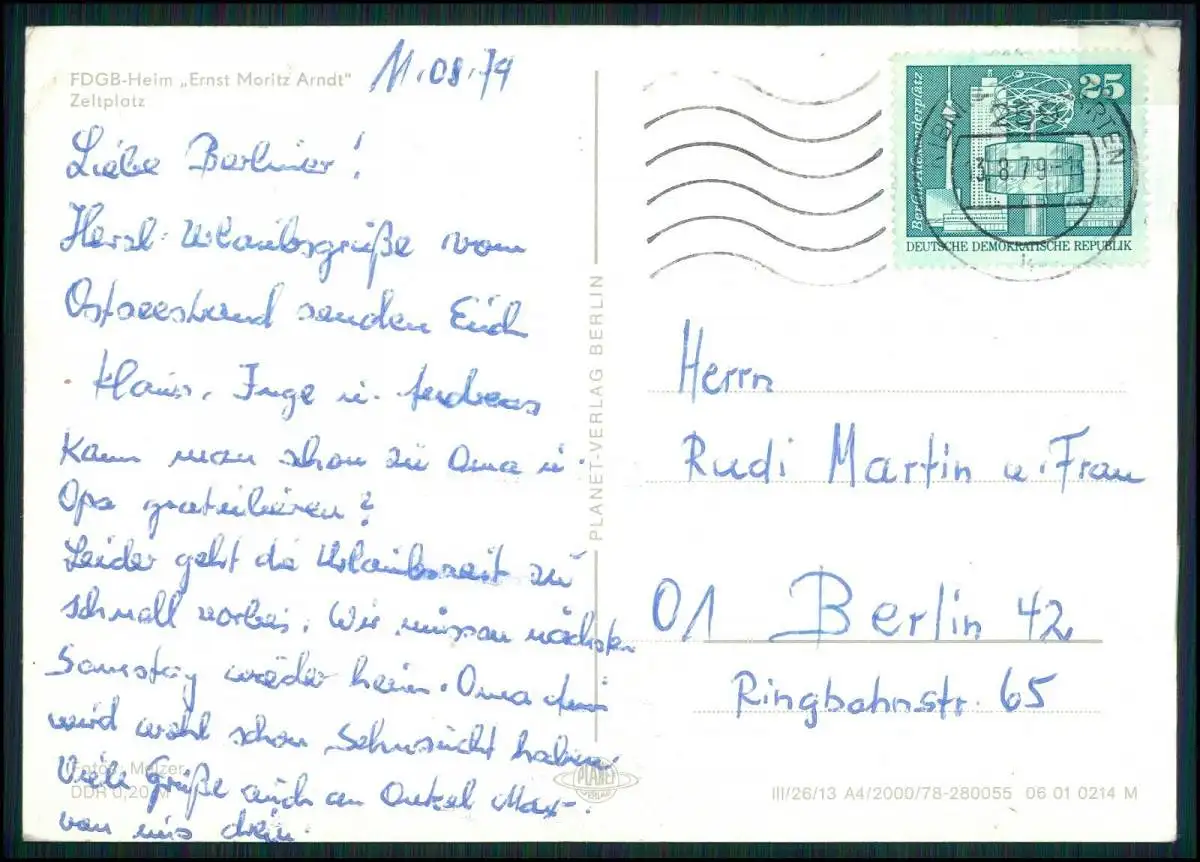 FDGB-Heim „Ernst Moritz Arndt"
Zeltplatz
11.08.79
Liebe Berliner!
Herzl. Urlaubsgrüße vom
Ostseestrand senden Euch
Klaus, Inge u. Andreas
Kann man schon zu Oma u.
Opa gratulieren?
Leider geht die Urlaubszeit zu
schnell vorbei. Wir müssen nächsten
Samstag wieder heim. Oma
wird wohl schon Sehnsucht haben.
Viele Grüße auch an Onkel Max
von uns drein.
Fotos: Melzer
DDR 0,20 M
PLANET-VERLAG BERLIN
PLANET
VERLAG
25
Berlin-Alexanderplatz
DEUTSCHE DEMOKRATISCHE REPUBLIK
Herrn
Rudi Martin u. Frau
01 Berlin 42
Ringbahnstr. 65
III/26/13 A4/2000/78-280055 06 01 0214 M